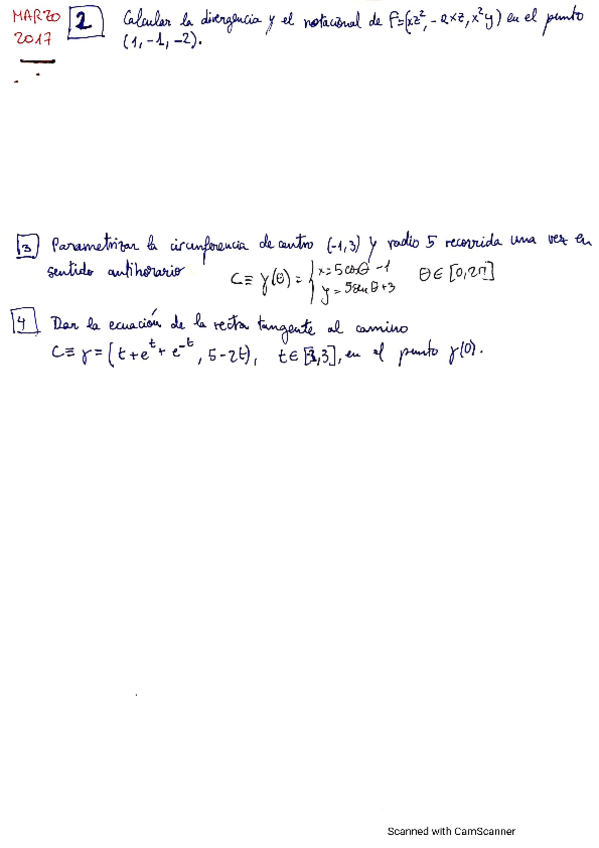 MARZO 2017
2 Calcular la divergencia y el rotacional de F=(xz², -2xz, x²y) en el punto
(1, -1, -2).
3 Parametrizar la circunferencia de centro (-1,3) y radio 5 recorrida una vez en
sentido antihorario C≡ γ(θ) = { x=5cosθ -1
y = 5senθ+3 θ∈[0,2π]
4 Dar la ecuación de la recta tangente al camino
C≡ γ = (t+e^t+e^-t, 5-2t), t∈[,3], en el punto γ(0).
Scanned with CamScanner